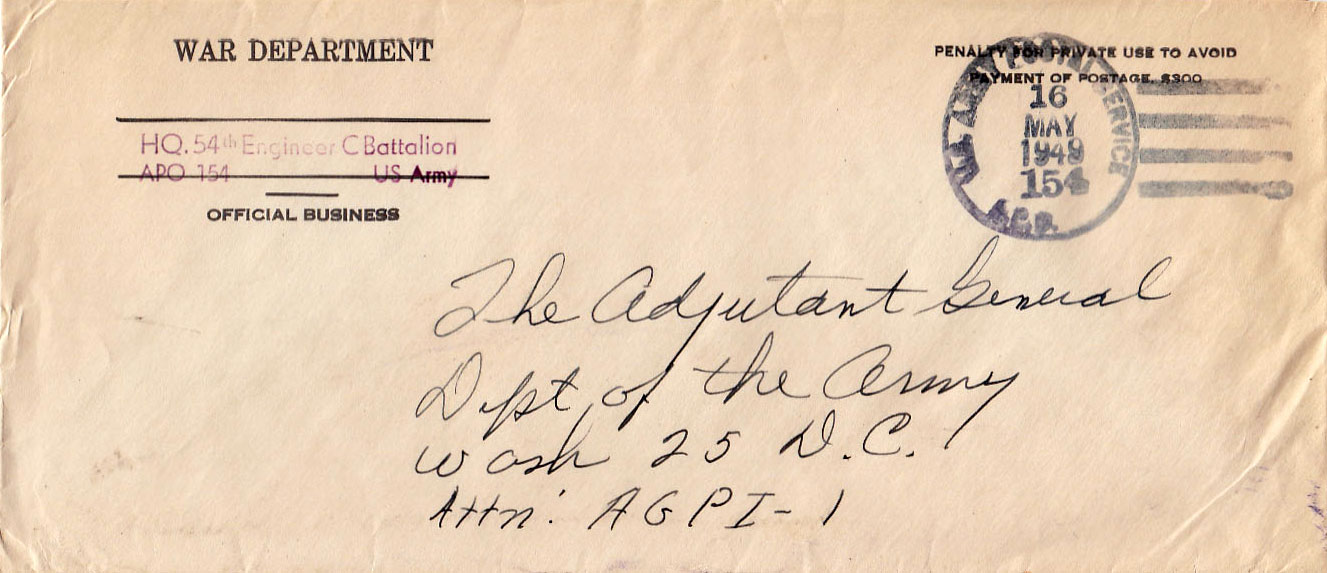 WAR DEPARTMENT
HQ. 54th Engineer C Battalion
APO 154 US Army
OFFICIAL BUSINESS
PENALTY FOR PRIVATE USE TO AVOID
PAYMENT OF POSTAGE, $300
U.S. ARMY POSTAL SERVICE
16
MAY
1949
154
A.P.O.
The Adjutant General
Dept, of the Army
Wash 25 D.C.
Attn: AGPI-1